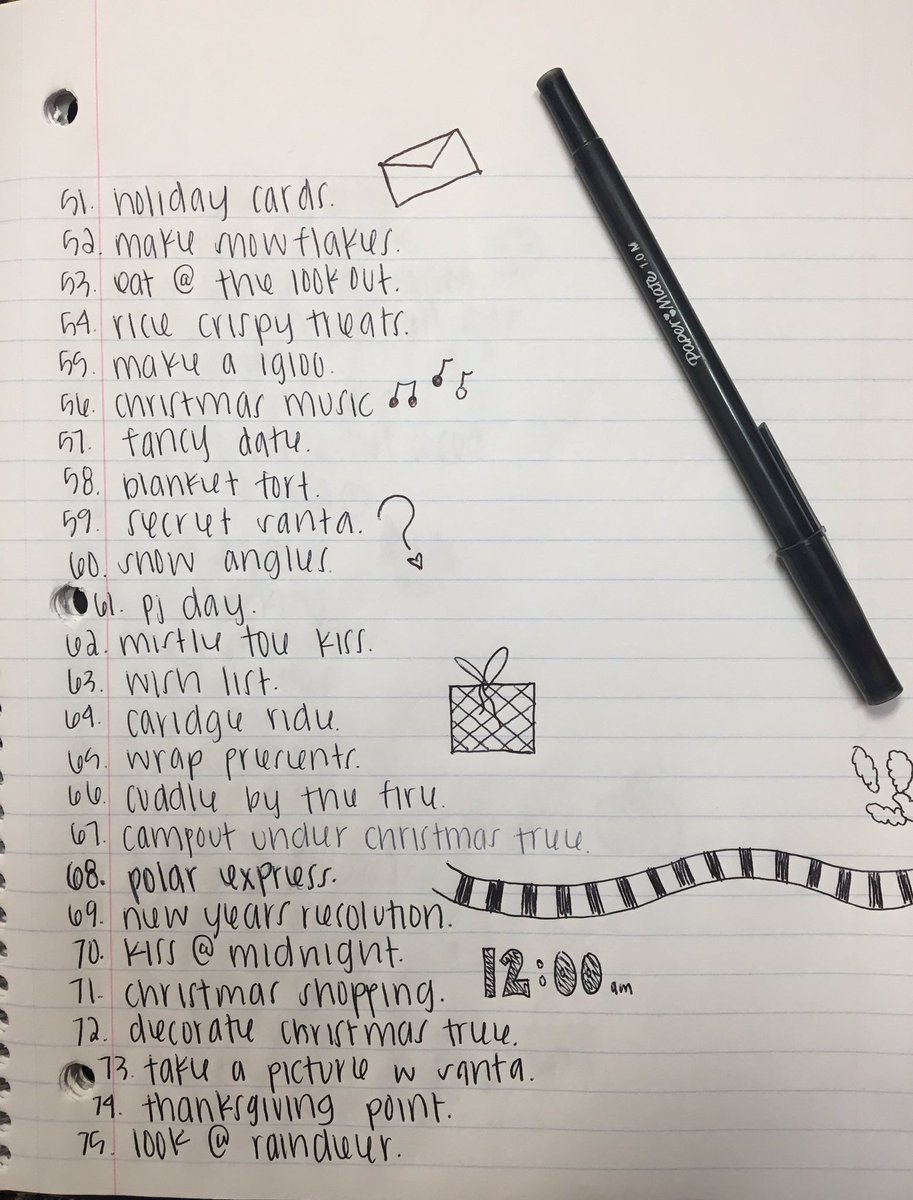 51. holiday cards.
52. make snowflakes.
53. eat @ the look out.
54. rice crispy treats.
55. make a igloo.
56. christmas music
57. fancy date.
58. blanket fort.
59. secret santa. ?
60. snow angles.
61. pj day.
62. mistle toe kiss.
63. wish list.
64. caridge ride.
65. wrap presents.
66. cuddle by the fire.
67. campout under christmas tree.
68. polar express.
69. new years resolution.
70. kiss @ midnight.
12:00 am
71. christmas shopping.
72. decorate christmas tree.
73. take a picture w santa.
74. thanksgiving point.
75. look @ raindeer.
Paper Mate 1.0 M